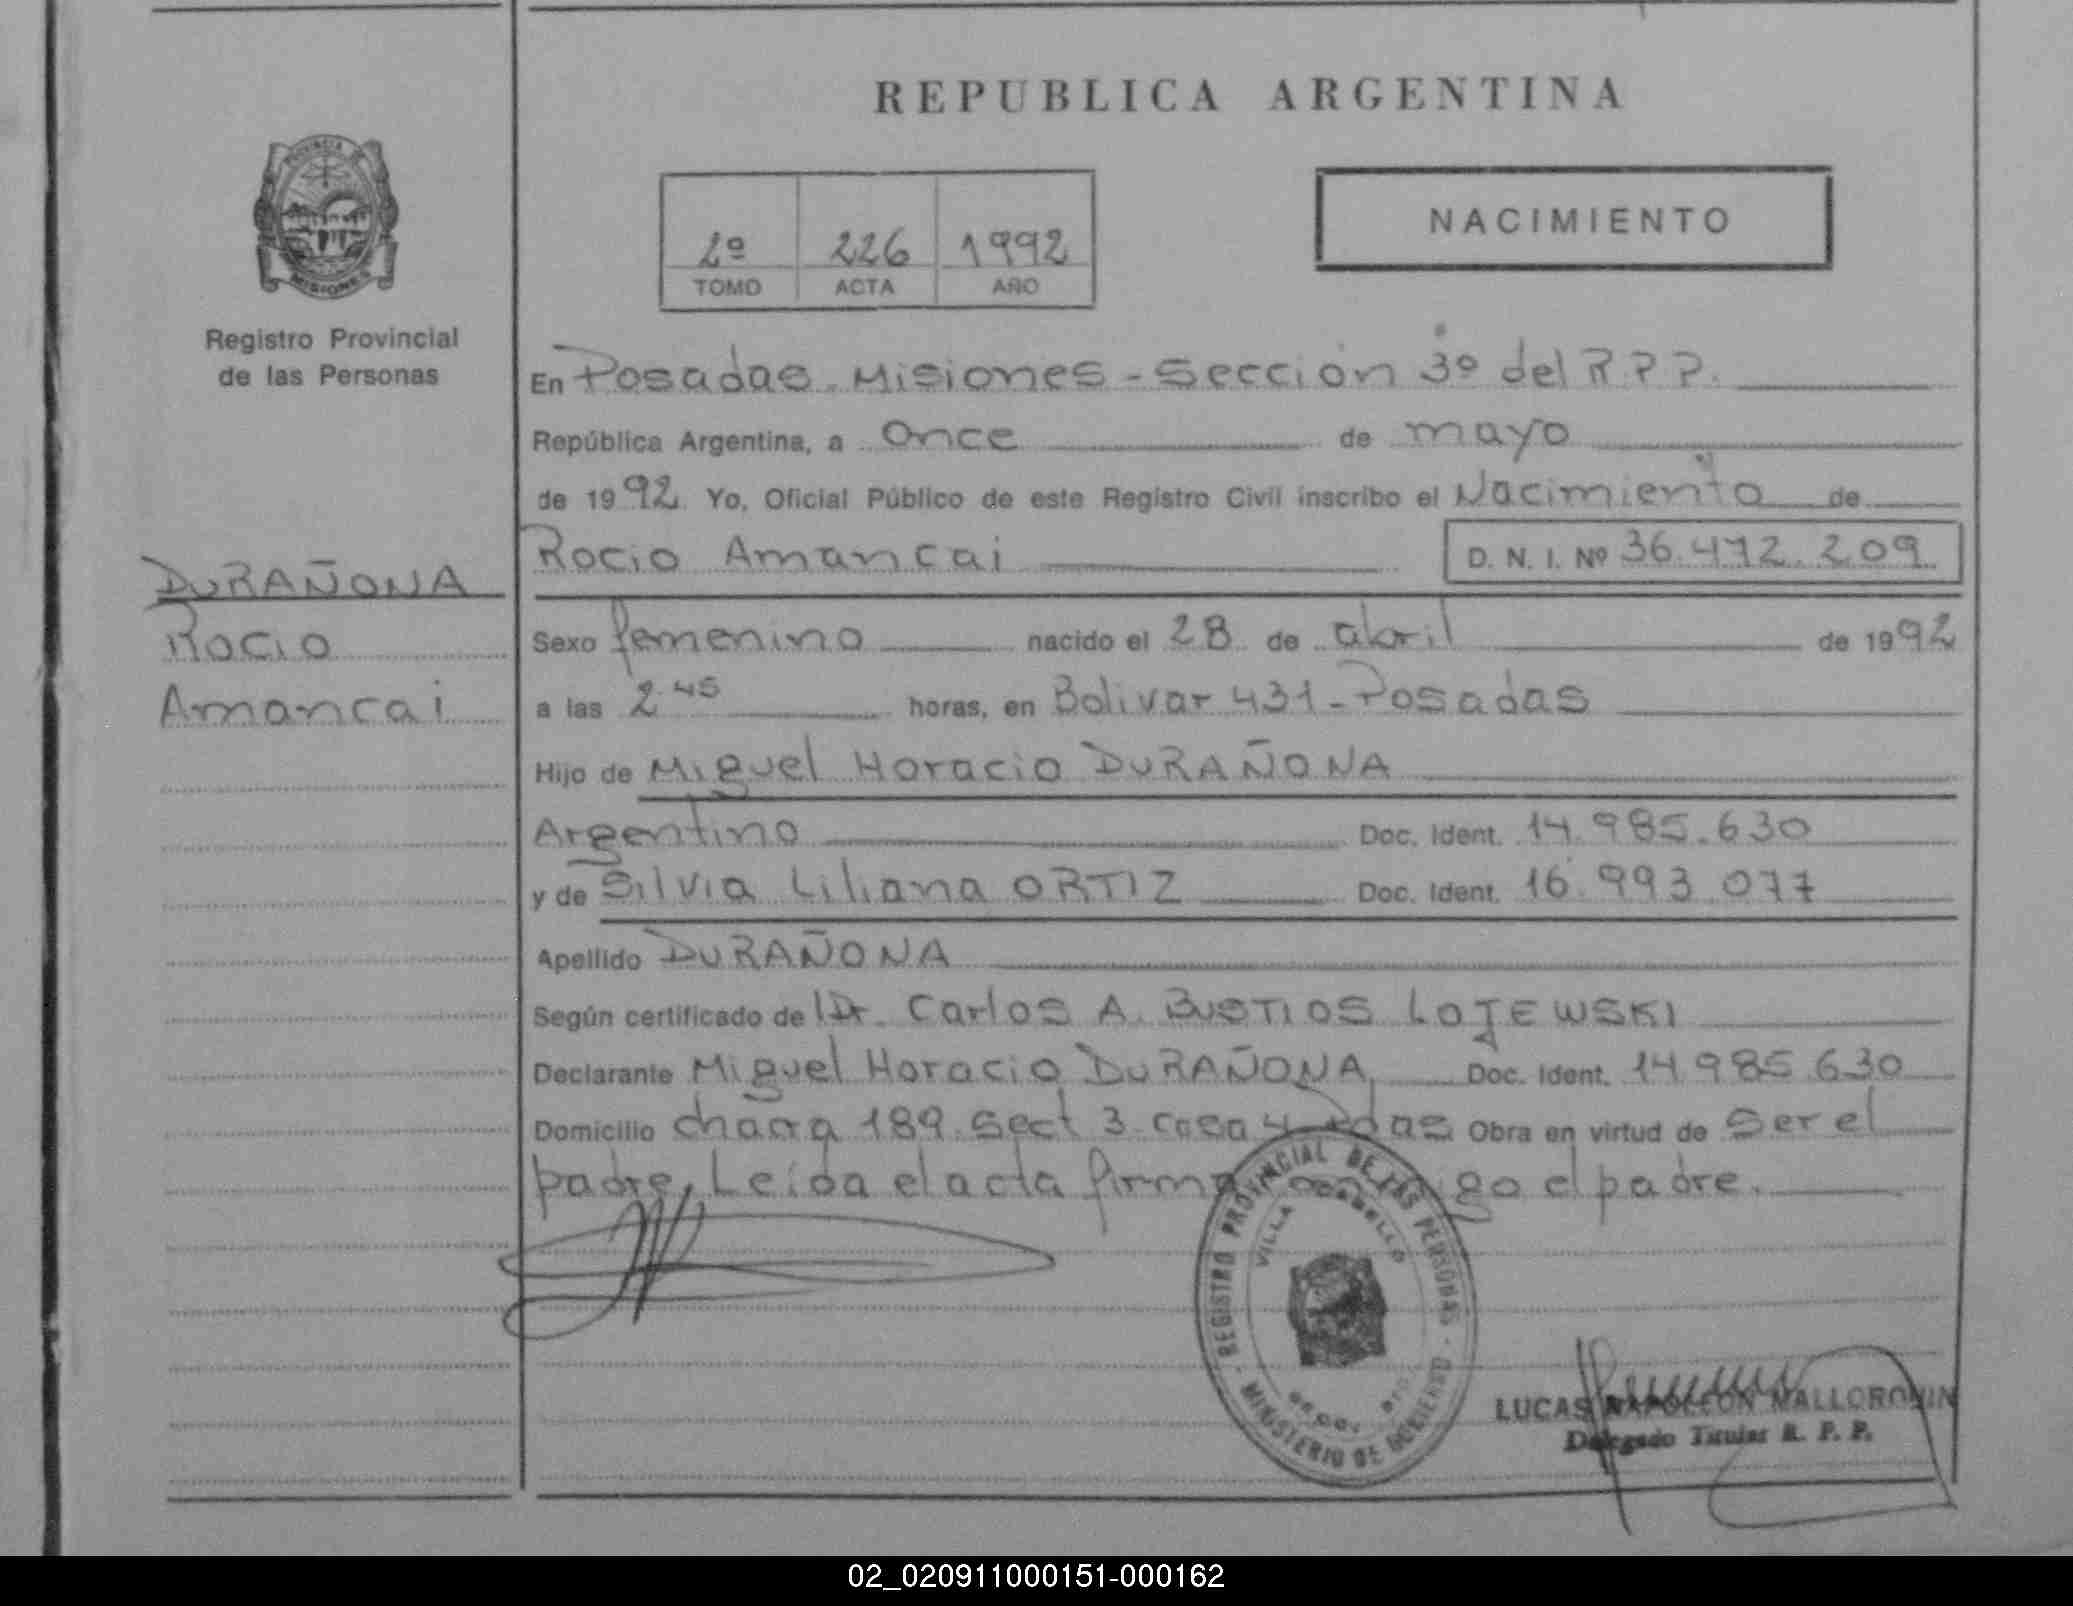 REPUBLICA ARGENTINA
PROVINCIA DE
MISIONES
Registro Provincial
de las Personas
2º 226 1992
TOMO ACTA AÑO
NACIMIENTO
En Posadas Misiones - Sección 3º del R.P.P.
República Argentina, a Once de mayo
de 1992. Yo, Oficial Público de este Registro Civil inscribo el Nacimiento de
Rocio Amancai D. N. I. Nº 36.472.209
DURAÑONA
Rocio
Amancai
Sexo femenino nacido el 28 de abril de 1992
a las 2.45 horas, en Bolivar 431 - Posadas
Hijo de Miguel Horacio DURAÑONA
Argentino Doc. Ident. 14.985.630
y de Silvia Liliana ORTIZ Doc. Ident. 16.993.077
Apellido DURAÑONA
Según certificado de Dr. Carlos A. BUSTIOS LOJEWSKI
Declarante Miguel Horacio DURAÑONA Doc. Ident. 14.985.630
Domicilio chacra 189 sect 3 casa 4 Pdas Obra en virtud de Ser el
padre, Leida el acta firma go el padre.
REGISTRO PROVINCIAL DE LAS PERSONAS
VILLA CABELLO
MINISTERIO DE GOBIERNO
LUCAS NAPOLEON MALLORQUIN
Delegado Titular R. P. P.
02_020911000151-000162